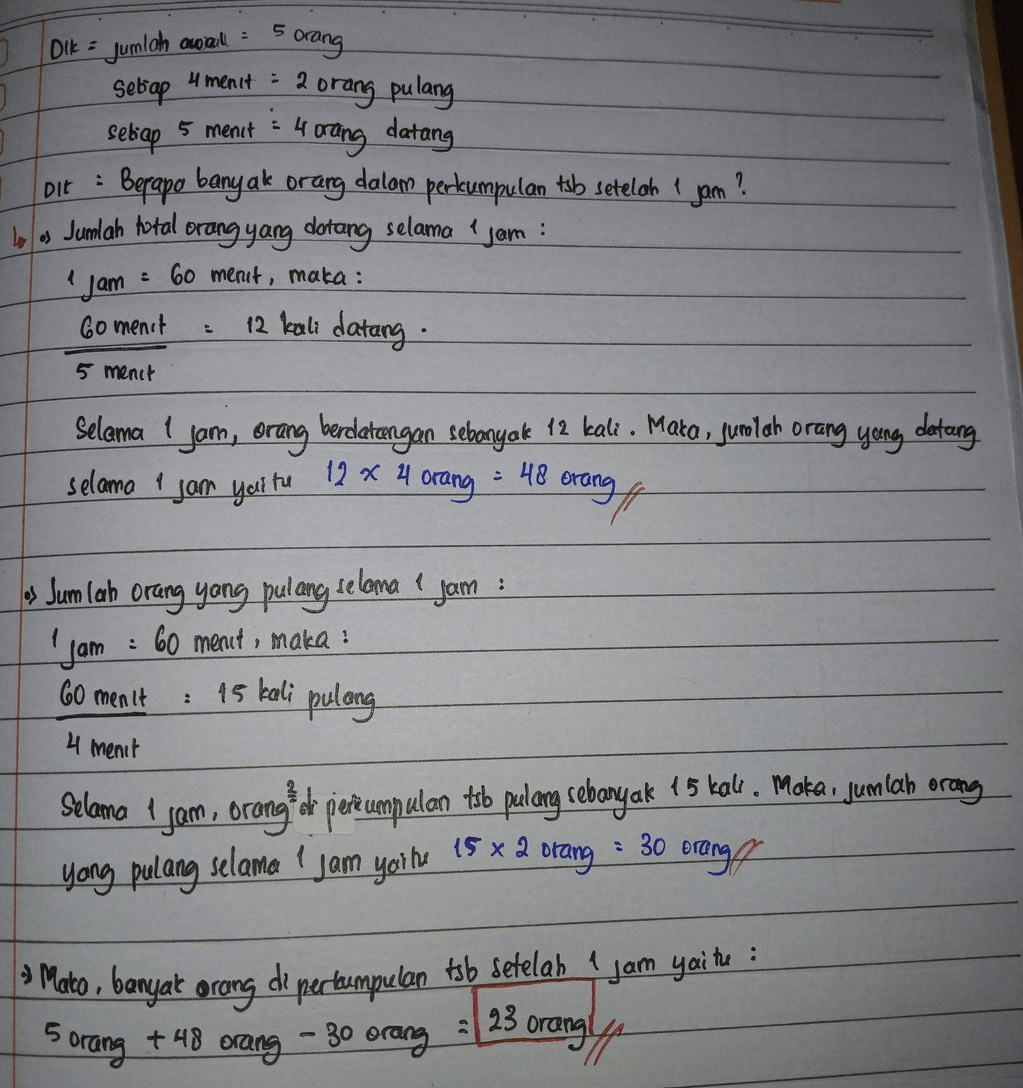 Dik = jumlah awal = 5 orang
Setiap 4 menit = 2 orang pulang
setiap 5 menit = 4 orang datang
Dit : Berapa banyak orang dalam perkumpulan tsb setelah 1 jam?
↳ •) Jumlah total orang yang datang selama 1 jam :
1 jam = 60 menit, maka :
60 menit = 12 kali datang.
5 menit
Selama 1 jam, orang berdatangan sebanyak 12 kali. Maka, jumlah orang yang datang
selama 1 jam yaitu 12 x 4 orang = 48 orang //
•) Jumlah orang yang pulang selama 1 jam :
1 jam = 60 menit, maka :
60 menit = 15 kali pulang
4 menit
Selama 1 jam, orang² di perkumpulan tsb pulang sebanyak 15 kali. Maka, jumlah orang
yang pulang selama 1 jam yaitu 15 x 2 orang = 30 orang //
→ Maka, banyak orang di perkumpulan tsb setelah 1 jam yaitu :
5 orang + 48 orang - 30 orang = 23 orang //